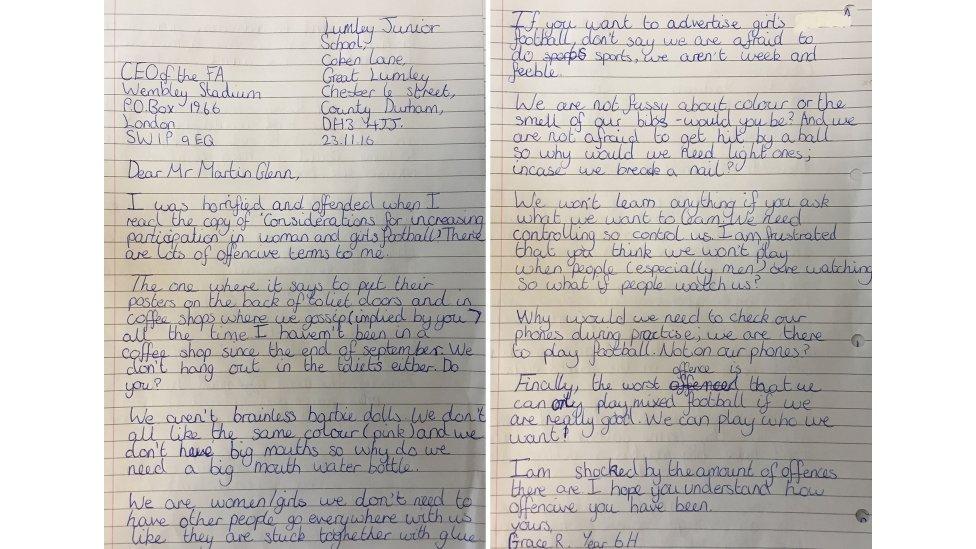 Lumley Junior
School,
Cohen Lane,
Great Lumley
Chester le street,
County Durham,
DH3 4JJ.
23.11.16
CEO of the FA
Wembley Stadium
P.O.Box 1966
London
SW1P 9EQ
Dear Mr Martin Glenn,
I was horrified and offended when I
read the copy of 'Considerations for increasing
participation in woman and girls football'. There
are lots of offencive terms to me.
The one where it says to put their
posters on the back of toliet doors and in
coffee shops where we gossip (implied by you)
all the time I haven't been in a
coffee shop since the end of september. We
don't hang out in the toliets either. Do
you?
We aren't brainless barbie dolls we don't
all like the same colour (pink) and we
don't have big mouths so why do we
need a big mouth water bottle.
We are women/girls we don't need to
have other people go everywhere with us
like they are stuck toghether with glue
If you want to advertise girls
football, don't say we are afraid to
do sports, we aren't week and
feeble.
We are not fussy about colour or the
smell of our bibs - would you be? And we
are not afraid to get hit by a ball
so why would we need light ones;
incase we break a nail?
We won't learn anything if you ask
what we want to learn. We need
controlling so control us. I am frustrated
that you think we won't play
when people (especially men) are watching
so what if people watch us?
Why would we need to check our
phones during practise; we are there
to play football. Not on our phones?
Finally, the worst offence is that we
can only play mixed football if we
are really good. We can play who we
want!
I am shocked by the amount of offences
there are I hope you understand how
offencive you have been.
yours,
Grace R. Year 6H